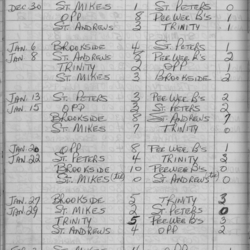 DEC 30 ST. MIKES 1 ST. PETERS 0
OPP 8 PEE WEE B'S 1
ST. ANDREWS 2 TRINITY 1
JAN. 6 BROOKSIDE 4 ST. PETERS 1
JAN 8 ST. ANDREWS 2 PEE WEE B'S
TRINITY 2 OPP
ST. MIKES 3 BROOKSIDE 2
JAN. 13 ST. PETERS 3 PEE WEE B'S 2
JAN. 15 OPP 3 ST. PETERS 2
BROOKSIDE 8 ST. ANDREWS 7
ST. MIKES 7 TRINITY 0
JAN. 20 OPP PEE WEE B'S 1
JAN 22 ST. PETERS 4 TRINITY 3
BROOKSIDE 10 PEE WEE B'S 0
ST. MIKES 0 ST. ANDREWS 0
JAN. 27 BROOKSIDE 2 TRINITY 3
JAN 29 ST. MIKES 2 ST. PETERS 0
TRINITY 5 PEE WEE B'S 3
ST. ANDREWS 4 OPP 2